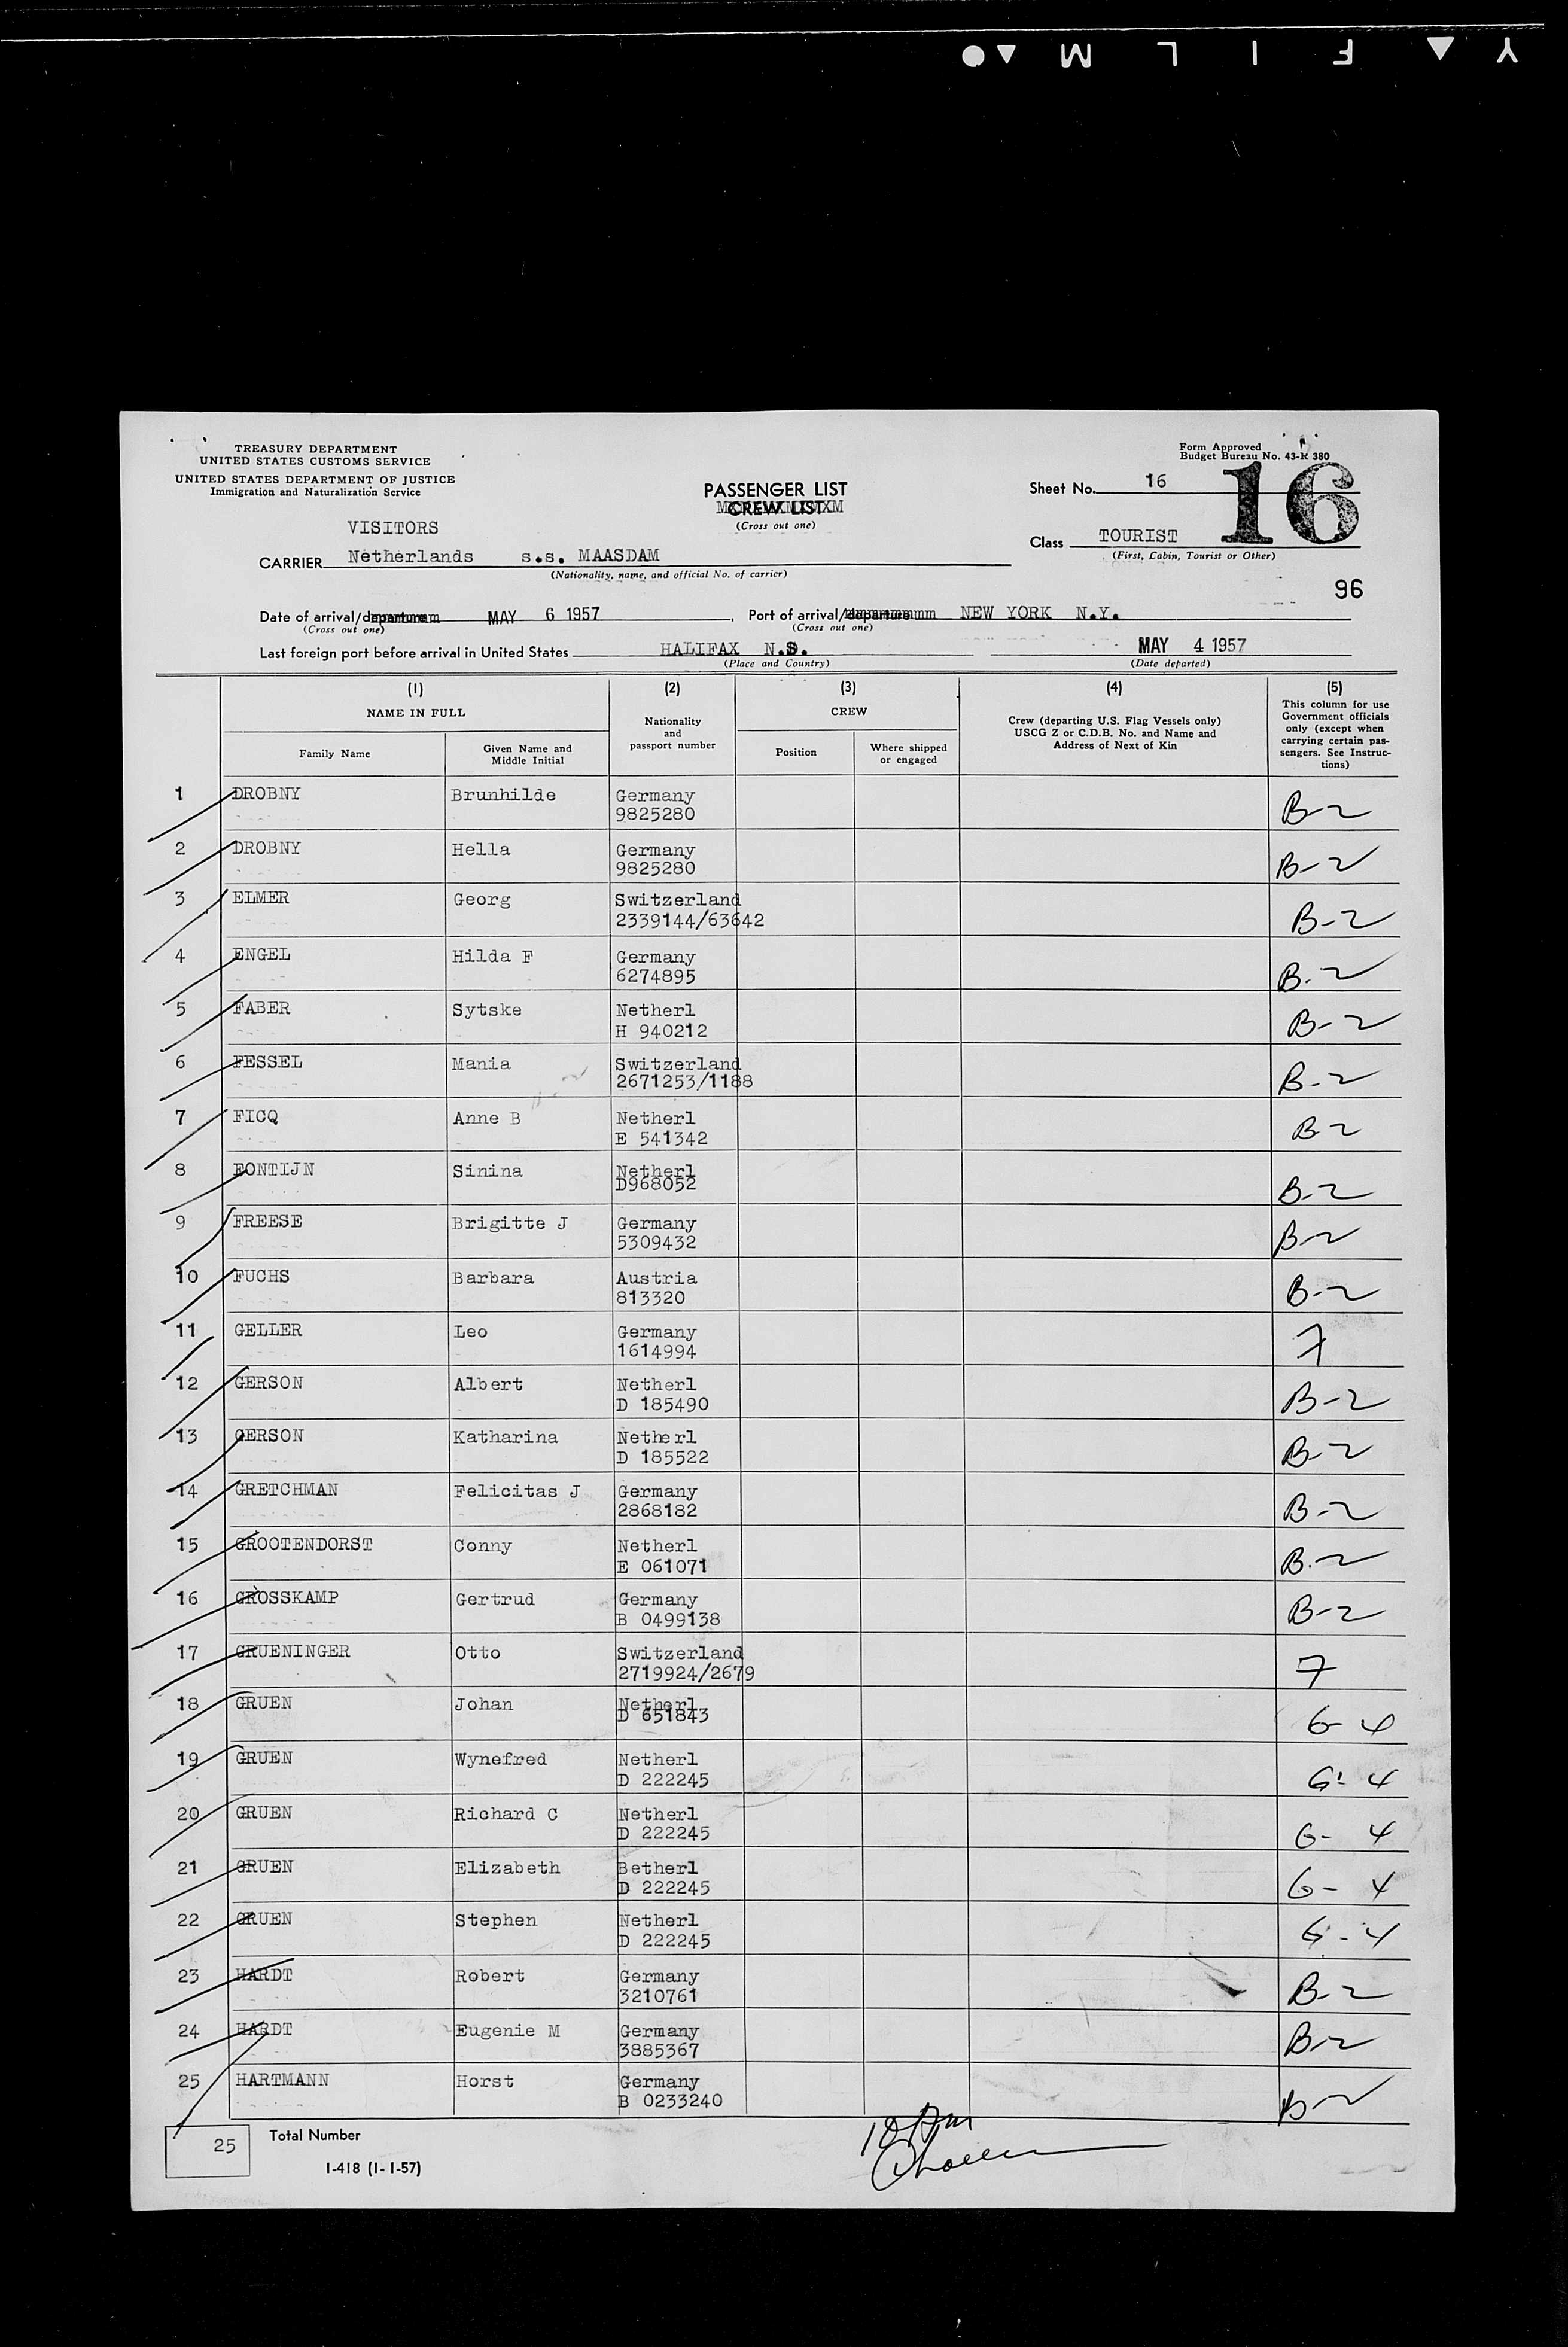 Y F I L M
TREASURY DEPARTMENT
UNITED STATES CUSTOMS SERVICE
UNITED STATES DEPARTMENT OF JUSTICE
Immigration and Naturalization Service
PASSENGER LIST
CREW LIST
(Cross out one)
Form Approved
Budget Bureau No. 43-R 380
Sheet No. 16
16
VISITORS
CARRIER Netherlands s.s. MAASDAM
(Nationality, name, and official No. of carrier)
Class TOURIST
(First, Cabin, Tourist or Other)
96
Date of arrival/departure MAY 6 1957, Port of arrival/departure NEW YORK N.Y.
(Cross out one) (Cross out one)
Last foreign port before arrival in United States HALIFAX N.S. MAY 4 1957
(Place and Country) (Date departed)
(1) (2) (3) (4) (5)
NAME IN FULL
Family Name
Given Name and
Middle Initial
Nationality
and
passport number
CREW
Position
Where shipped
or engaged
Crew (departing U.S. Flag Vessels only)
USCG Z or C.D.B. No. and Name and
Address of Next of Kin
This column for use
Government officials
only (except when
carrying certain pas-
sengers. See Instruc-
tions)
1 DROBNY Brunhilde Germany B-2
9825280
2 DROBNY Hella Germany B-2
9825280
3 ELMER Georg Switzerland B-2
2339144/63642
4 ENGEL Hilda F Germany B-2
6274895
5 FABER Sytske Netherl B-2
H 940212
6 FESSEL Mania Switzerland B-2
2671253/1188
7 FICQ Anne B Netherl B-2
E 541342
8 FONTIJN Sinina Netherl B-2
D968052
9 FREESE Brigitte J Germany B-2
5309432
10 FUCHS Barbara Austria B-2
813320
11 GELLER Leo Germany 7
1614994
12 GERSON Albert Netherl B-2
D 185490
13 GERSON Katharina Netherl B-2
D 185522
14 GRETCHMAN Felicitas J Germany B-2
2868182
15 GROOTENDORST Conny Netherl B-2
E 061071
16 GROSSKAMP Gertrud Germany B-2
B 0499138
17 GRUENINGER Otto Switzerland 7
2719924/2679
18 GRUEN Johan Netherl G-4
D 651843
19 GRUEN Wynefred Netherl G-4
D 222245
20 GRUEN Richard C Netherl G-4
D 222245
21 GRUEN Elizabeth Betherl G-4
D 222245
22 GRUEN Stephen Netherl G-4
D 222245
23 HARDT Robert Germany B-2
3210761
24 HARDT Eugenie M Germany B-2
3885367
25 HARTMANN Horst Germany B-2
B 0233240
25 Total Number
I-418 (1-1-57)